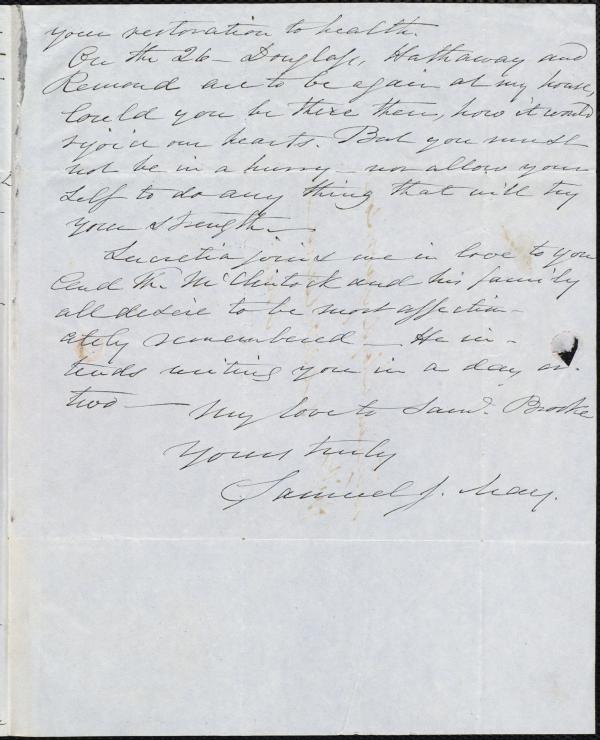 your restoration to health.
On the 26 – Douglass, Hathaway and
Remond are to be again at my house,
Could you be there then, how it would
rejoice our hearts. But you must
not be in a hurry – nor allow your
self to do any thing that will try
your strength –
Lucretia joins me in love to you
And Th. McClintock and his family
all desire to be most affection-
ately remembered – He in-
tends writing you in a day or
two – My love to Saml. Brooke
Yours truly
Samuel J. May.